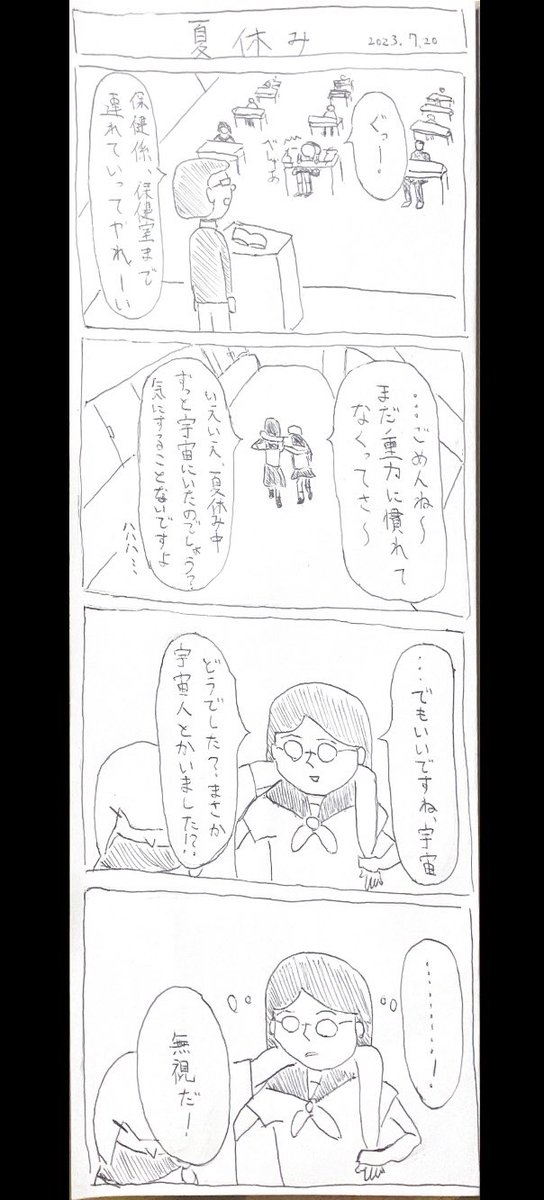 夏休み
2023.7.20
ぐっー。
保健係、保健室まで
連れていってやれーい
・・・ごめんね〜
まだ重力に慣れて
なくってさ〜
いえいえ、夏休み中
ずっと宇宙にいたのでしょう?
気にすることないですよ
ハハハ・・・
・・・でもいいですね、宇宙
どうでした?まさか
宇宙人とかいました!?
・・・・・・・・・・!
無視だ!